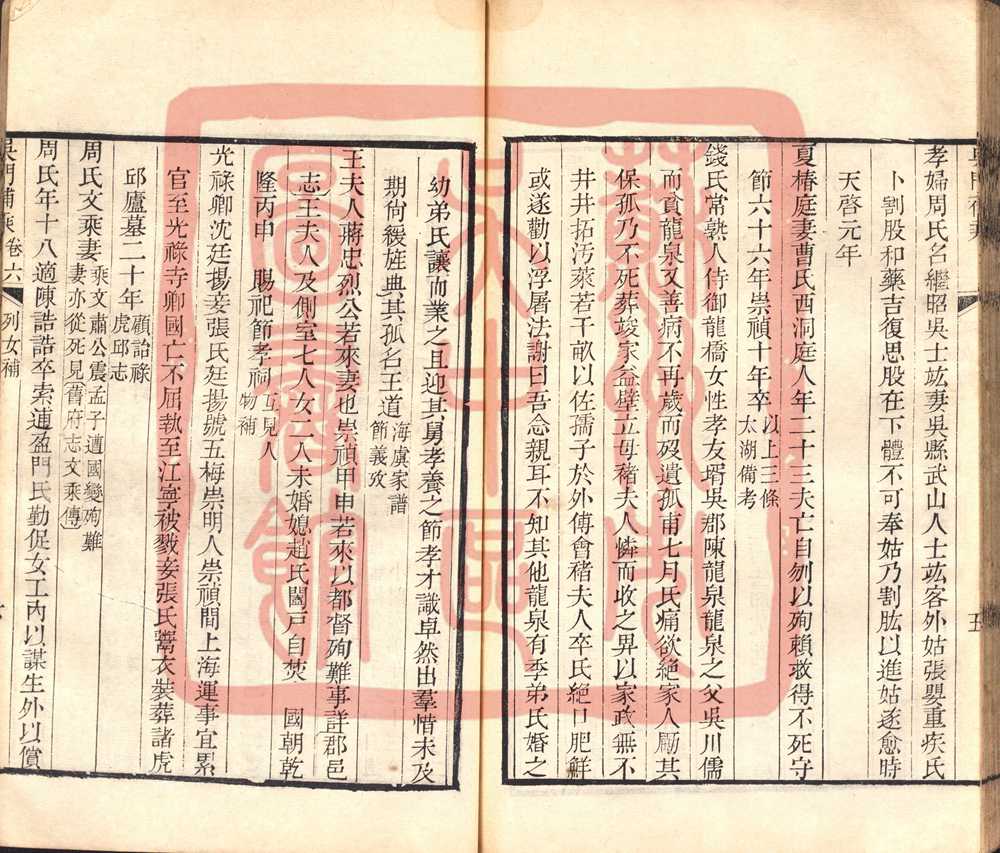 孝婦周氏名繼昭吳士竑妻吳縣武山人士竑客外姑張嬰重疾氏
卜割股和藥吉復思股在下體不可奉姑乃割肱以進姑遂愈時
天啓元年
夏椿庭妻曹氏西洞庭人年二十三夫亡自刎以殉賴救得不死守
節六十六年崇禎十年卒以上三條
太湖備考
錢氏常熟人侍御龍橋女性孝友壻吳郡陳龍泉龍泉之父吳川儒
而貧龍泉又善病不再歲而歿遺孤甫七月氏痛欲絕家人勵其
保孤乃不死葬竣家益壁立母豬夫人憐而收之畀以家政無不
井井拓汚萊若干畝以佐孺子於外傅會豬夫人卒氏絕口肥鮮
或遂勸以浮屠法謝曰吾念親耳不知其他龍泉有季弟氏婚之
吳門補乘卷六
列女補
幼弟氏讓而業之且迎其舅孝養之節孝才識卓然出羣惜未及
期尚緩旌典其孤名王道海虞家譜
節義攷
王夫人蔣忠烈公若來妻也崇禎甲申若來以都督殉難事詳郡邑
志王夫人及側室七人女二人未婚媳趙氏闔戶自焚 國朝乾
隆丙申 賜祀節孝祠互見人
物補
光祿卿沈廷揚妾張氏廷揚號五梅崇明人崇禎間上海運事宜累
官至光祿寺卿國亡不屈執至江寧被戮妾張氏鬻衣裝葬諸虎
邱廬墓二十年顧詒祿
虎邱志
周氏文乘妻乘文肅公震孟子遭國變殉難
妻亦從死見舊府志文乘傳
周氏年十八適陳誥誥卒索逋盈門氏勤促女工內以謀生外以償